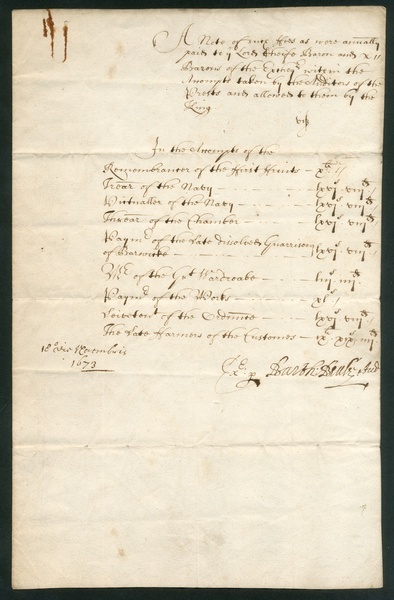 A Note of such ffees as were annally
paid to ye Lord Cheife Baron and
Barons of the Excheqr within the
Accompts taken by the Auditors of the
Prests and allowed to them by the
King
vizt
In the Accompts of the
Remembrancer of the First Fruits
Trear of the Navy lxvjs viijd
Victualler of the Navy lxvjs viijd
Trear of the Chamber lxvjs viijd
Paymr of the Late dissolved Guarrison
of Barwicke lxvjs viijd
Mr of the Gt Wardroabe liijs iiijd
Paymr of the Works xls
Leivetent of the Ordnance lxvjs viijd
The Late Farmers of the Customes ixli xixs iiijd
18 die Novembris
1673
Exr p Barth: Beale Aud